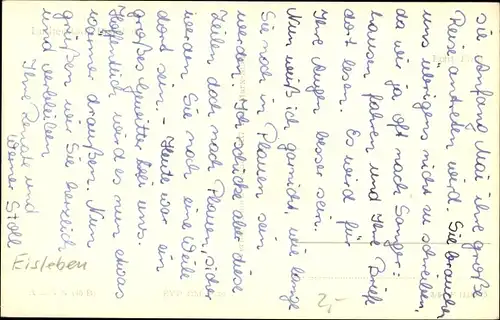 die Anfang Mai ihre große
Reise antreten wird. Sie brauchen
uns übrigens nicht zu schreiben,
da wir ja oft nach Sanger-
hausen fahren und Ihre Briefe
dort lesen. Es wird für
Ihre Augen besser sein.
Nun weiß ich garnicht, wie lange
Sie noch in Plauen sein
werden. Ich schicke aber diese
Zeilen doch nach Plauen, sicher
werden Sie noch eine Weile
dort sein. - Heute war ein
großes Gewitter bei uns.
Hoffentlich wird es nun etwas
wärmer draußen. Nun
grüßen wir Sie herzlich
und verbleiben
Ihre Renate und
Werner Stoll
Eisleben
2,-